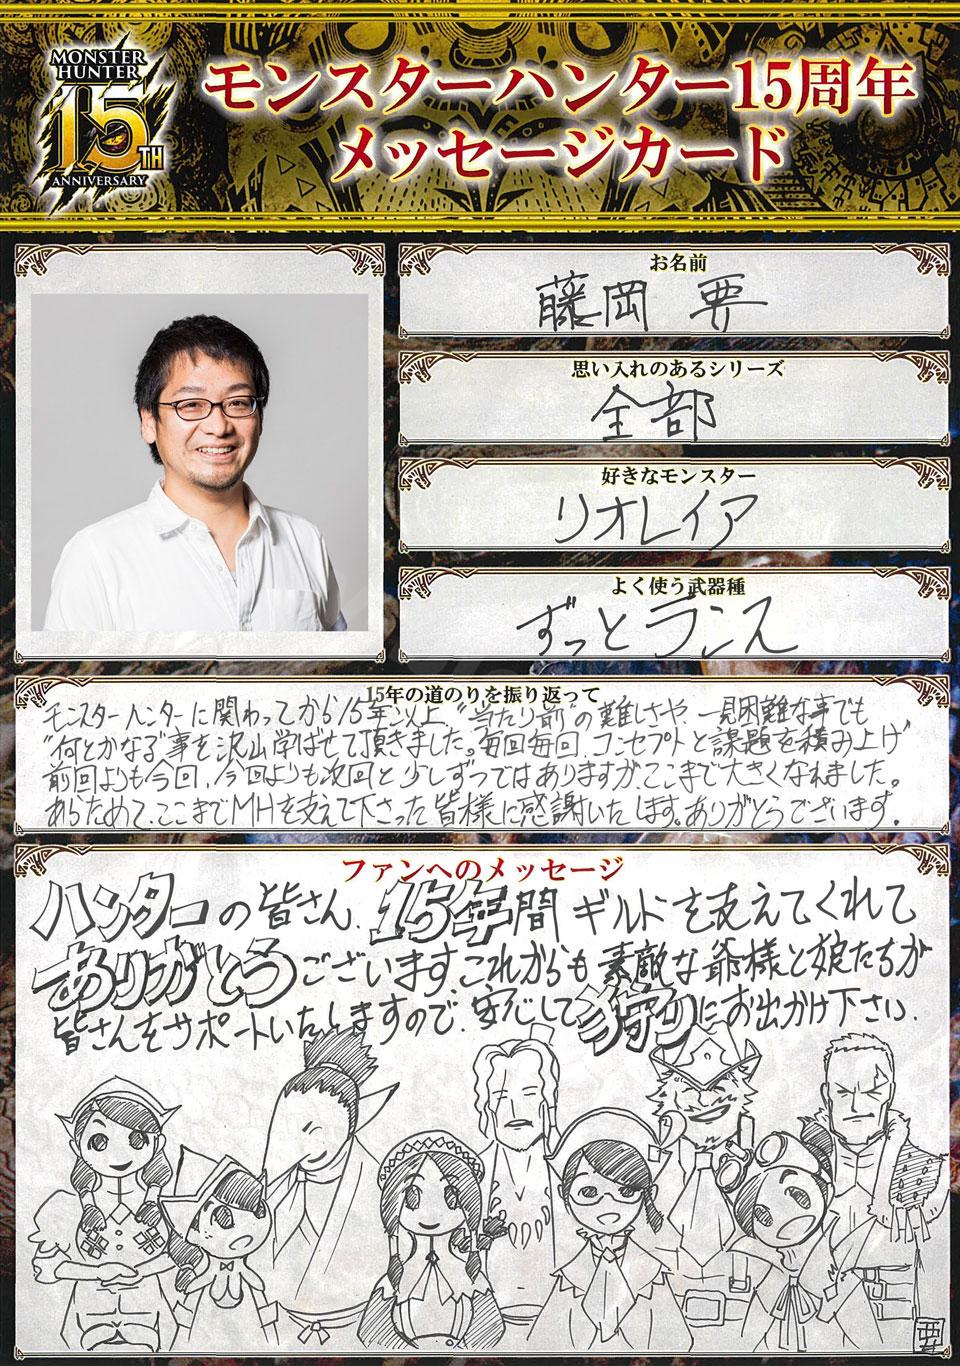 MONSTER
HUNTER
15TH
ANNIVERSARY
モンスターハンター15周年
メッセージカード
お名前
藤岡 要
思い入れのあるシリーズ
全部
好きなモンスター
リオレイア
よく使う武器種
ずっとランス
15年の道のりを振り返って
モンスターハンターに関わってから15年以上、"当たり前"の難しさや、一見困難な事でも
"何とかなる"事を沢山学ばせて頂きました。毎回毎回、コンセプトと課題を積み上げ
前回よりも今回、今回よりも次回と少しずつではありますが、ここまで大きくなれました。
あらためて、ここまでMHを支えて下さった皆様に感謝いたします。ありがとうございます。
ファンへのメッセージ
ハンターの皆さん、15年間ギルドを支えてくれて
ありがとうございます。これからも素敵な爺様と娘たちが
皆さんをサポートいたしますので、安心して狩りにお出かけ下さい。